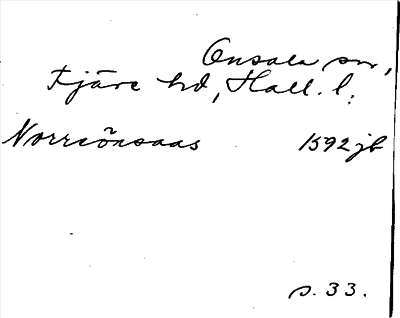 Onsala sn,
Fjäre hd, Hall. l.
Norreönsaas 1592 jb
s. 33.